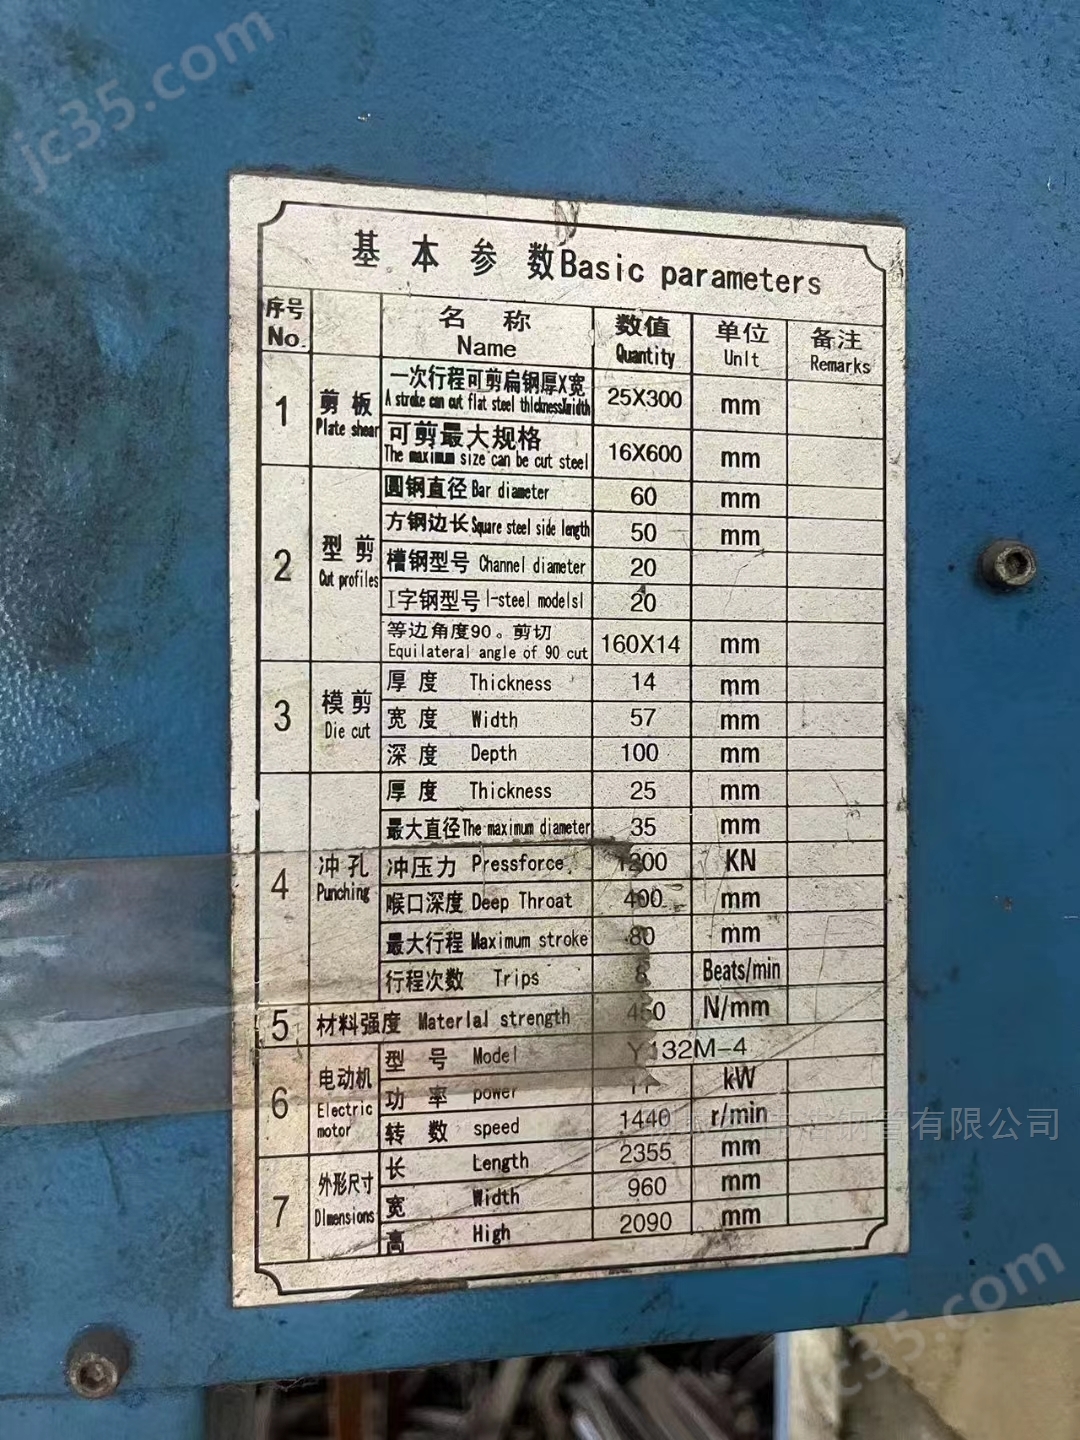 jc35.com
基本参数Basic parameters
序号 名称 数值 单位 备注
No. Name Quantity Unlt Remarks
1 剪板 一次行程可剪扁钢厚X宽 25X300 mm
Plate shear A stroke can cut flat steel thlcknessXwidth
可剪最大规格 16X600 mm
The maximum size can be cut steel
2 型剪 圆钢直径 Bar diameter 60 mm
Cut profiles 方钢边长 Square steel side length 50 mm
槽钢型号 Channel diameter 20
I字钢型号 I-steel modelsl 20
等边角度90。剪切 160X14 mm
Equilateral angle of 90 cut
3 模剪 厚度 Thickness 14 mm
Die cut 宽度 Width 57 mm
深度 Depth 100 mm
4 冲孔 厚度 Thickness 25 mm
Punching 最大直径 The maximum diameter 35 mm
冲压力 Pressforce 1200 KN
喉口深度 Deep Throat 400 mm
最大行程 Maximum stroke 80 mm
行程次数 Trips 8 Beats/min
5 材料强度 Materlal strength 450 N/mm
6 电动机 型号 Model Y132M-4
Electric motor 功率 power 11 kW
转数 speed 1440 r/min
7 外形尺寸 长 Length 2355 mm
Dlmensions 宽 Width 960 mm
高 High 2090 mm
钢管有限公司
jc35.com